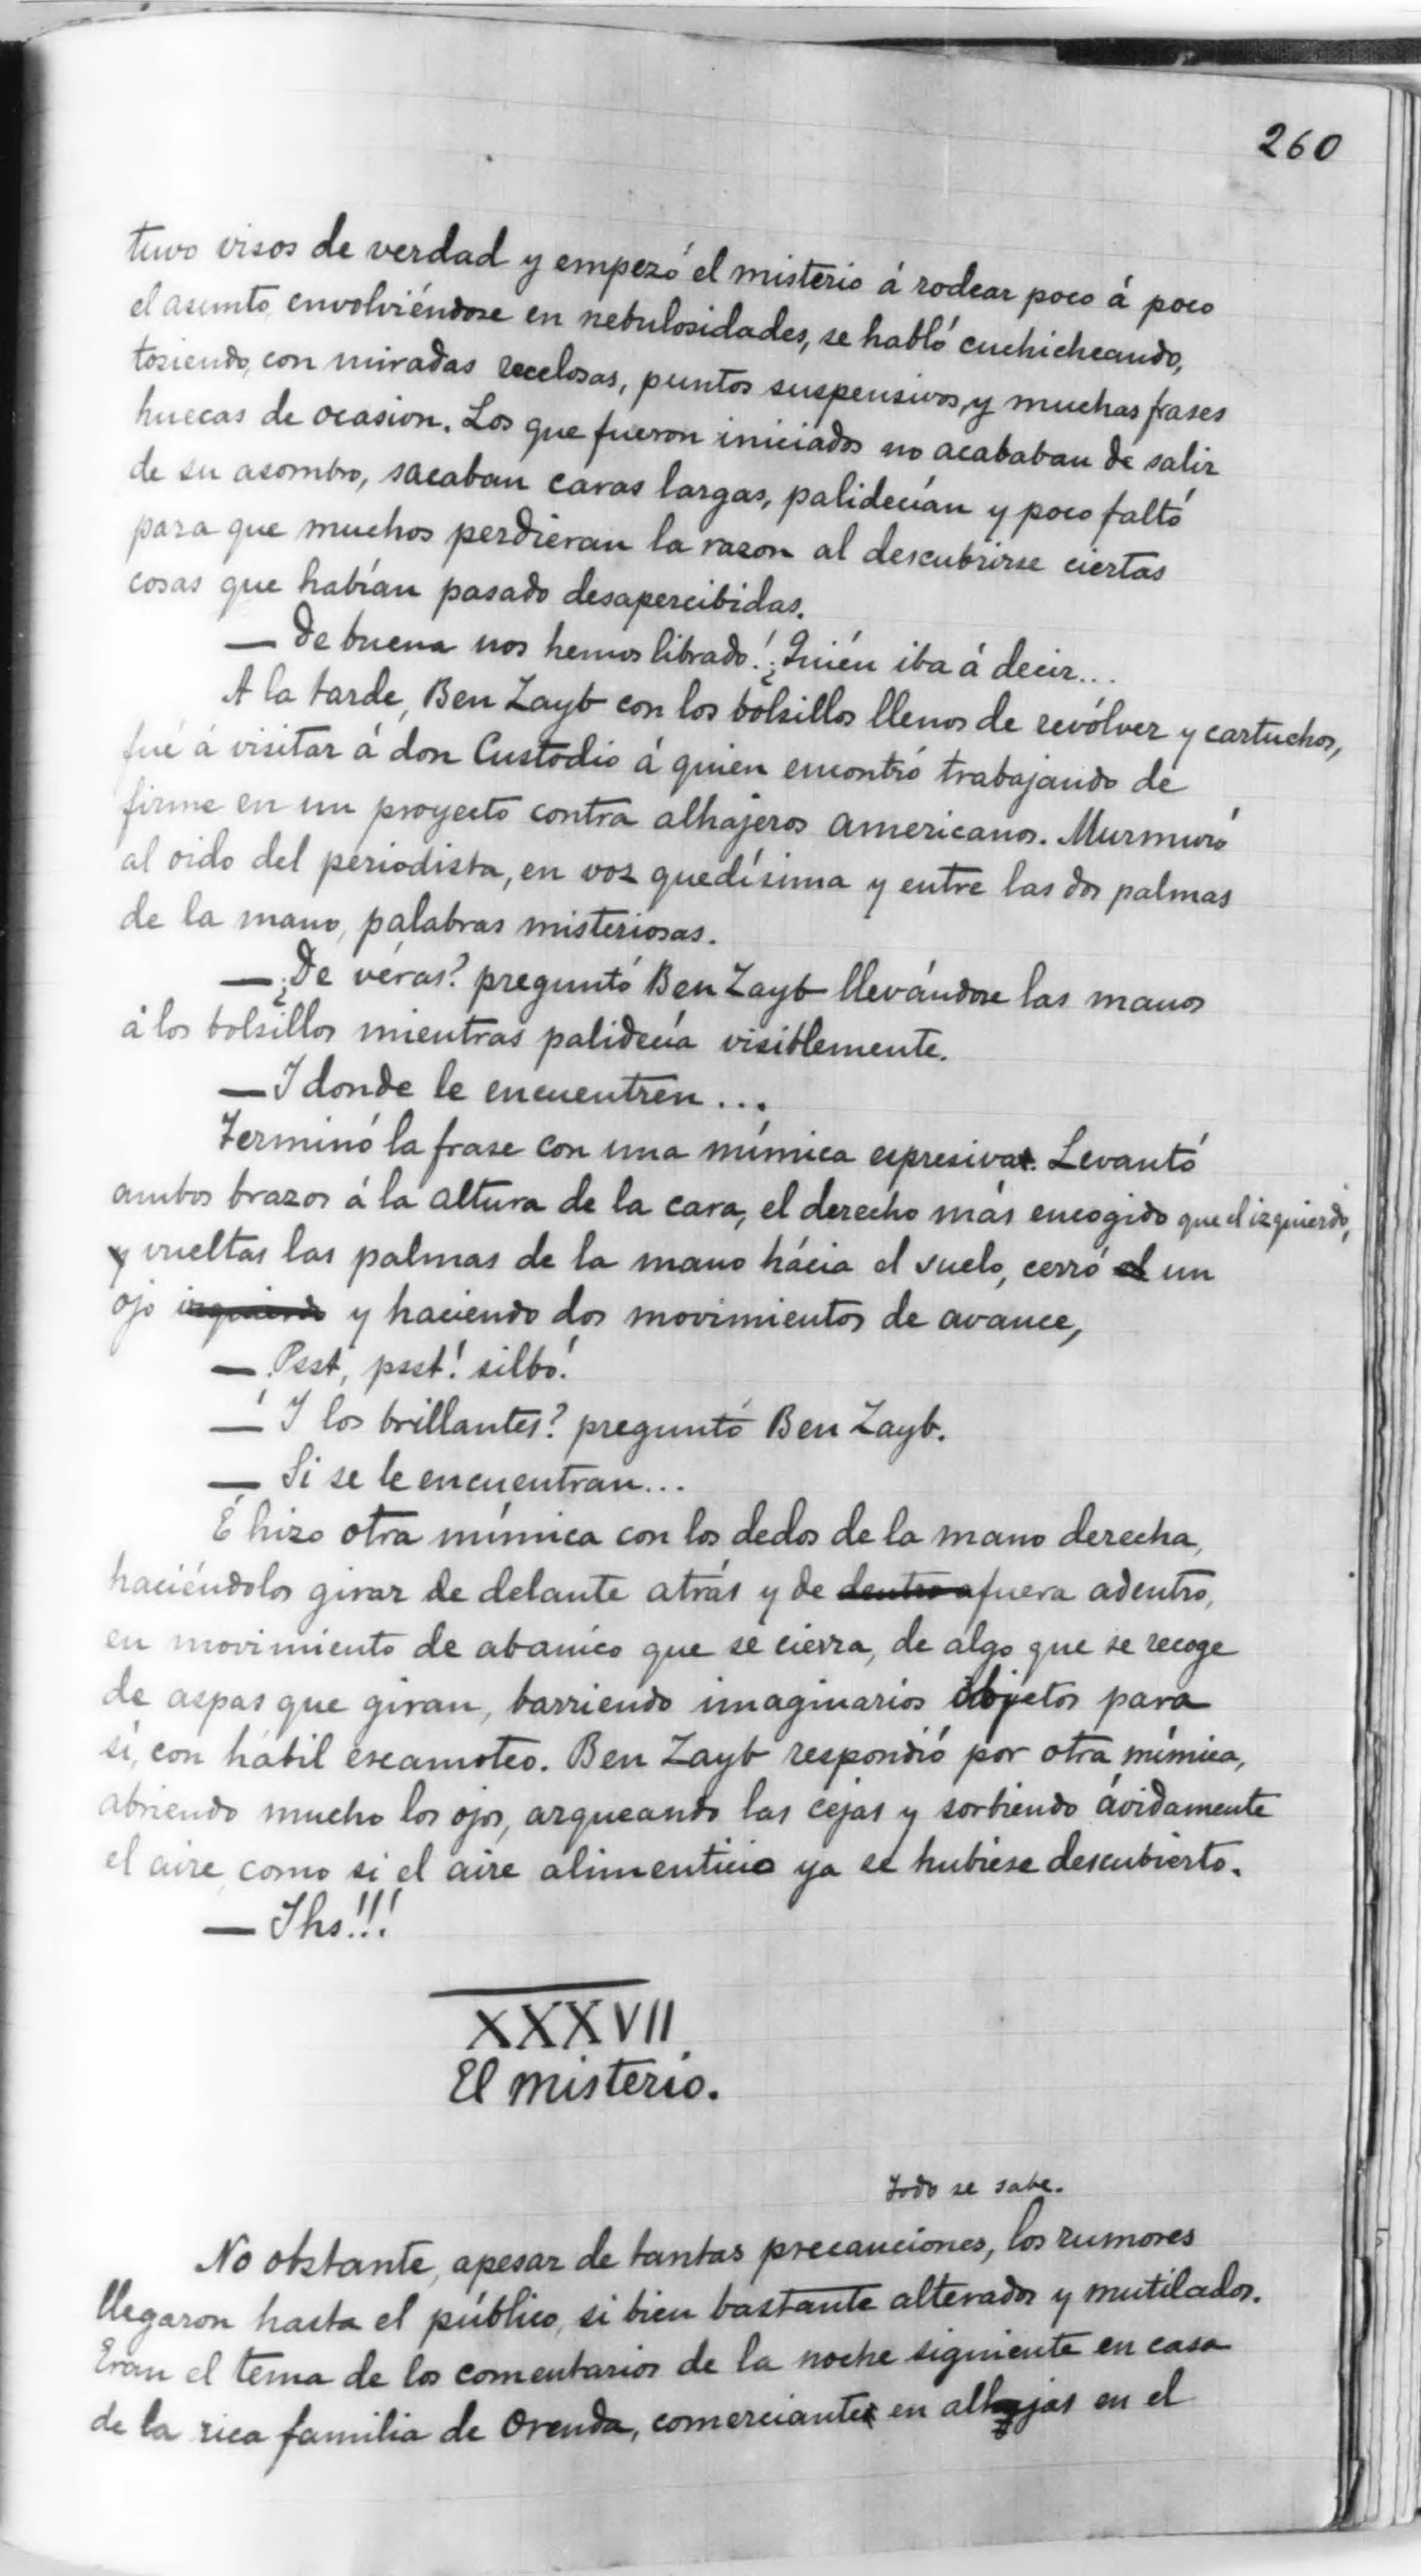 260
tuvo visos de verdad y empezó el misterio á rodear poco á poco
el asunto envolviéndose en nebulosidades, se habló cuchicheando,
tosiendo, con miradas recelosas, puntos suspensivos, y muchas frases
huecas de ocasion. Los que fueron iniciados no acababan de salir
de su asombro, sacaban caras largas, palidecían y poco faltó
para que muchos perdieran la razon al descubrirse ciertas
cosas que habían pasado desapercibidas.
— De buena nos hemos librado! ¿Quién iba á decir...
A la tarde, Ben Zayb con los bolsillos llenos de revólver y cartuchos,
fué á visitar á don Custodio á quien encontró trabajando de
firme en un proyecto contra alhajeros americanos. Murmuró
al oido del periodista, en voz quedísima y entre las dos palmas
de la mano, palabras misteriosas.
— ¿De véras? preguntó Ben Zayb llevándose las manos
á los bolsillos mientras palidecía visiblemente.
— Y donde le encuentren...
Terminó la frase con una mímica espresiva. Levantó
ambos brazos á la altura de la cara, el derecho más encogido que el izquierdo,
y vueltas las palmas de la mano hácia el suelo, cerró el un
ojo izquierdo y haciendo dos movimientos de avance,
— Psst, psst! silbó!
— Y los brillantes? preguntó Ben Zayb.
— Si se le encuentran...
É hizo otra mímica con los dedos de la mano derecha,
haciéndolos girar de delante atrás y de dentro afuera adentro,
en movimiento de abanico que se cierra, de algo que se recoge
de aspas que giran, barriendo imaginarios objetos para
sí, con hábil escamoteo. Ben Zayb respondió por otra mímica,
abriendo mucho los ojos, arqueando las cejas y sorbiendo ávidamente
el aire como si el aire alimenticio ya se hubiese descubierto.
— Jhs!!!
XXXVII
El misterio.
Todo se sabe.
No obstante, apesar de tantas precauciones, los rumores
llegaron hasta el público, si bien bastante alterados y mutilados.
Eran el tema de los comentarios de la noche siguiente en casa
de la rica familia de Orenda, comerciante en alhajas en el